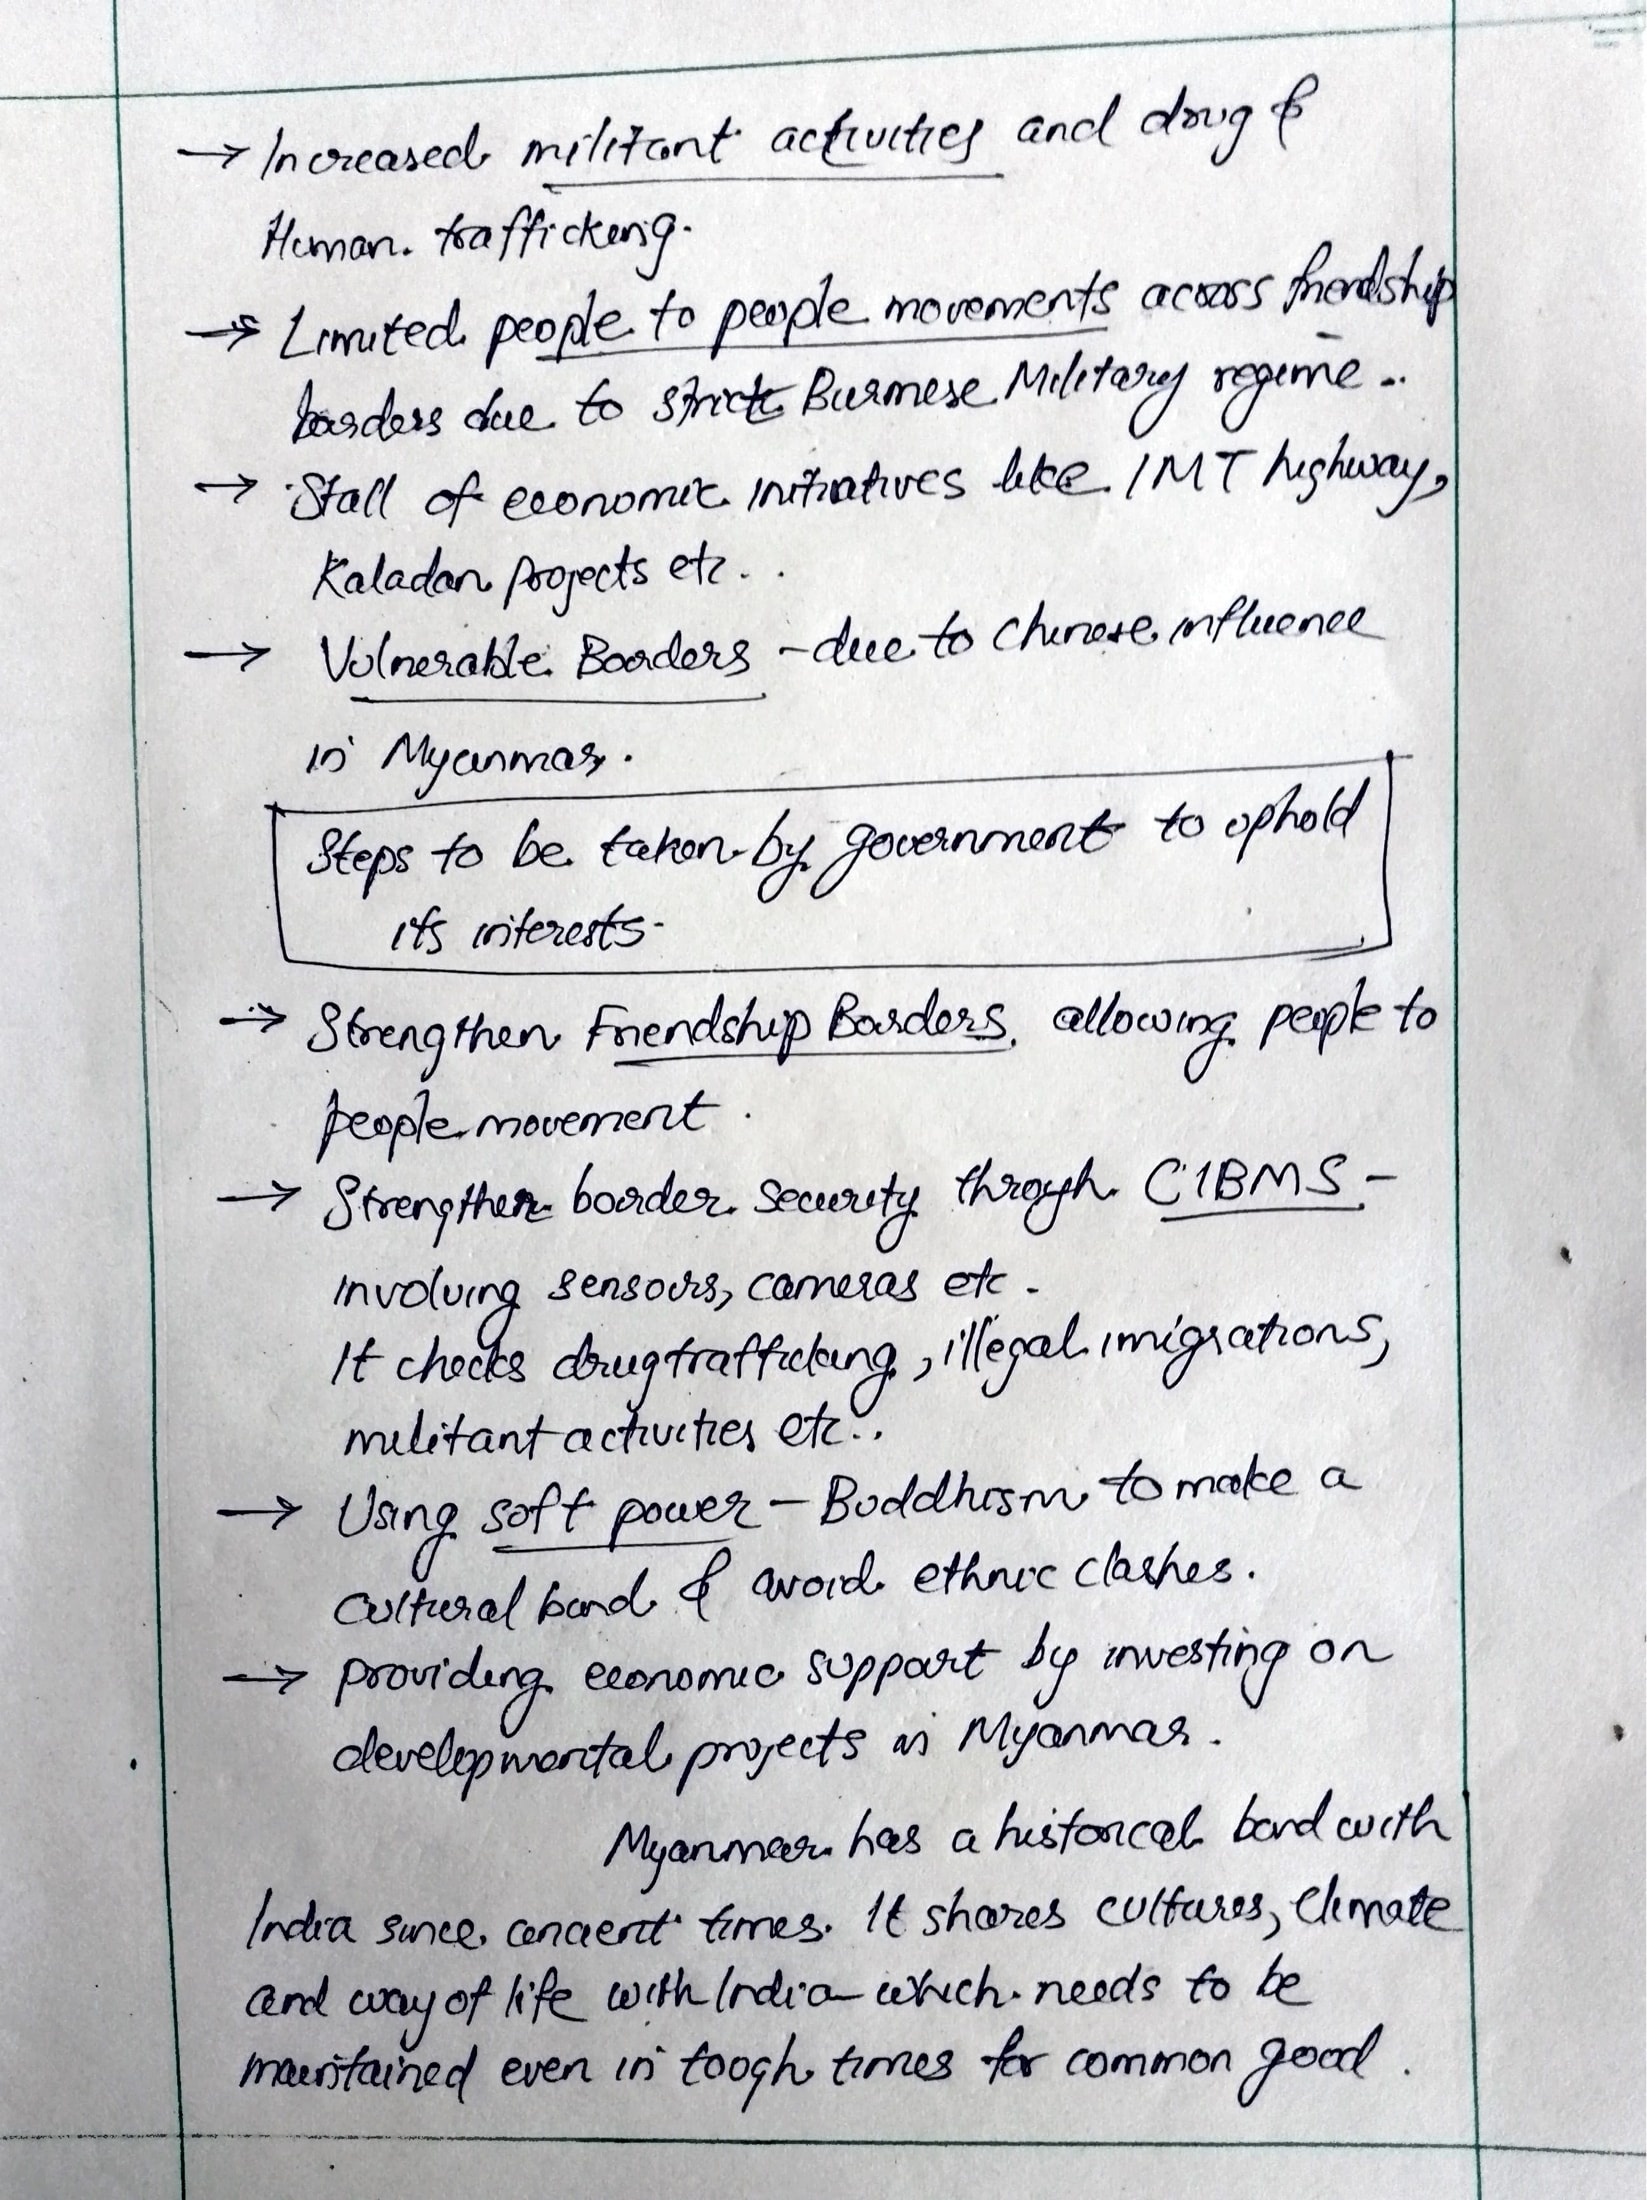 → Increased militant activities and drug &
Human trafficking.
→ Limited people to people movements across friendship
borders due to strict Burmese Military regime..
→ Stall of economic initiatives like IMT highway,
Kaladan projects etc..
→ Vulnerable Boarders - due to Chinese influence
in Myanmar.
Steps to be taken by government to uphold
its interests.
→ Strengthen Friendship Borders, allowing people to
people movement.
→ Strengthen boarder security through CIBMS -
involving sensors, cameras etc.
It checks drug trafficking, illegal imigrations,
militant activities etc..
→ Using soft power - Buddhism to make a
cultural bond & avoid ethnic clashes.
→ providing economic support by investing on
developmental projects in Myanmar.
Myanmar has a historical bond with
India since ancient times. It shares cultures, climate
and way of life with India which needs to be
maintained even in tough times for common good.